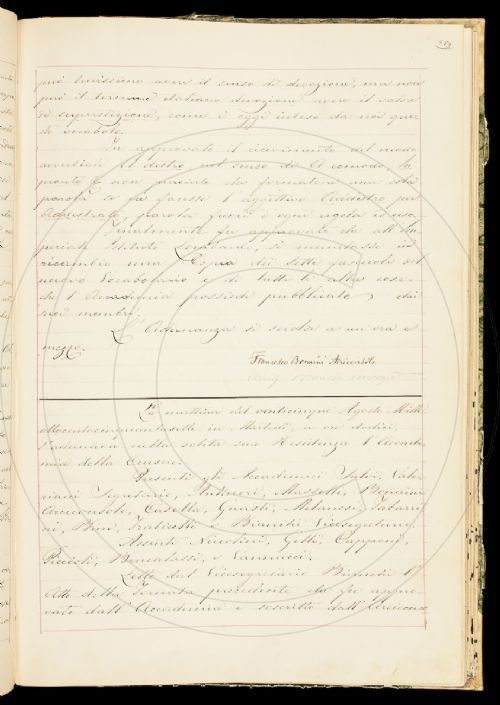 può benissimo avere il senso di devozione, ma non
può il termine italiano devozione avere il valore
di superstizione, come è oggi inteso da noi que-
sto vocabolo.
Fu approvato il ricevimento del modo
avverbiale Al destro nel senso di A comodo, In
pronto
parola se pur fausse l'aggettivo
parola fuori d'ogni regola
Finalmente fu
periale Istituto Lombardo, si mandasse in
ricambio una Copia dei sette fascicoli del
nuovo Vocabolario e di tutte le altre cose
che l'Accademia possiede pubblicate dai
suoi membri.
L'Adunanza si sciolse a un'ora e
mezzo.
Francesco Bonaini Arciconsolo
La mattina del venticinque Agosto Mille
ottocentocinquantasette in Martedì, a ore dodici,
s'adunava nella solita sua Residenza l'Accade-
mia della Crusca.
Presenti gli Accademici Salvi, Vale-
riani Segretario, Antinori, Masselli, Bonaini
Arciconsolo, Casella, Guasti, Milanesi, Tabarri-
ni, Bini, Fraticelli e Bianchi Vicesegretario.
Assenti Niccolini, Gelli, Capponi,
Puccioli, Bencatassi, e Vannucci.
Letto dal Vicesegretario Bianchi l'
Atto della tornata precedente fu appro-
vato dall'Accademia e soscritto dall'Arciconso-